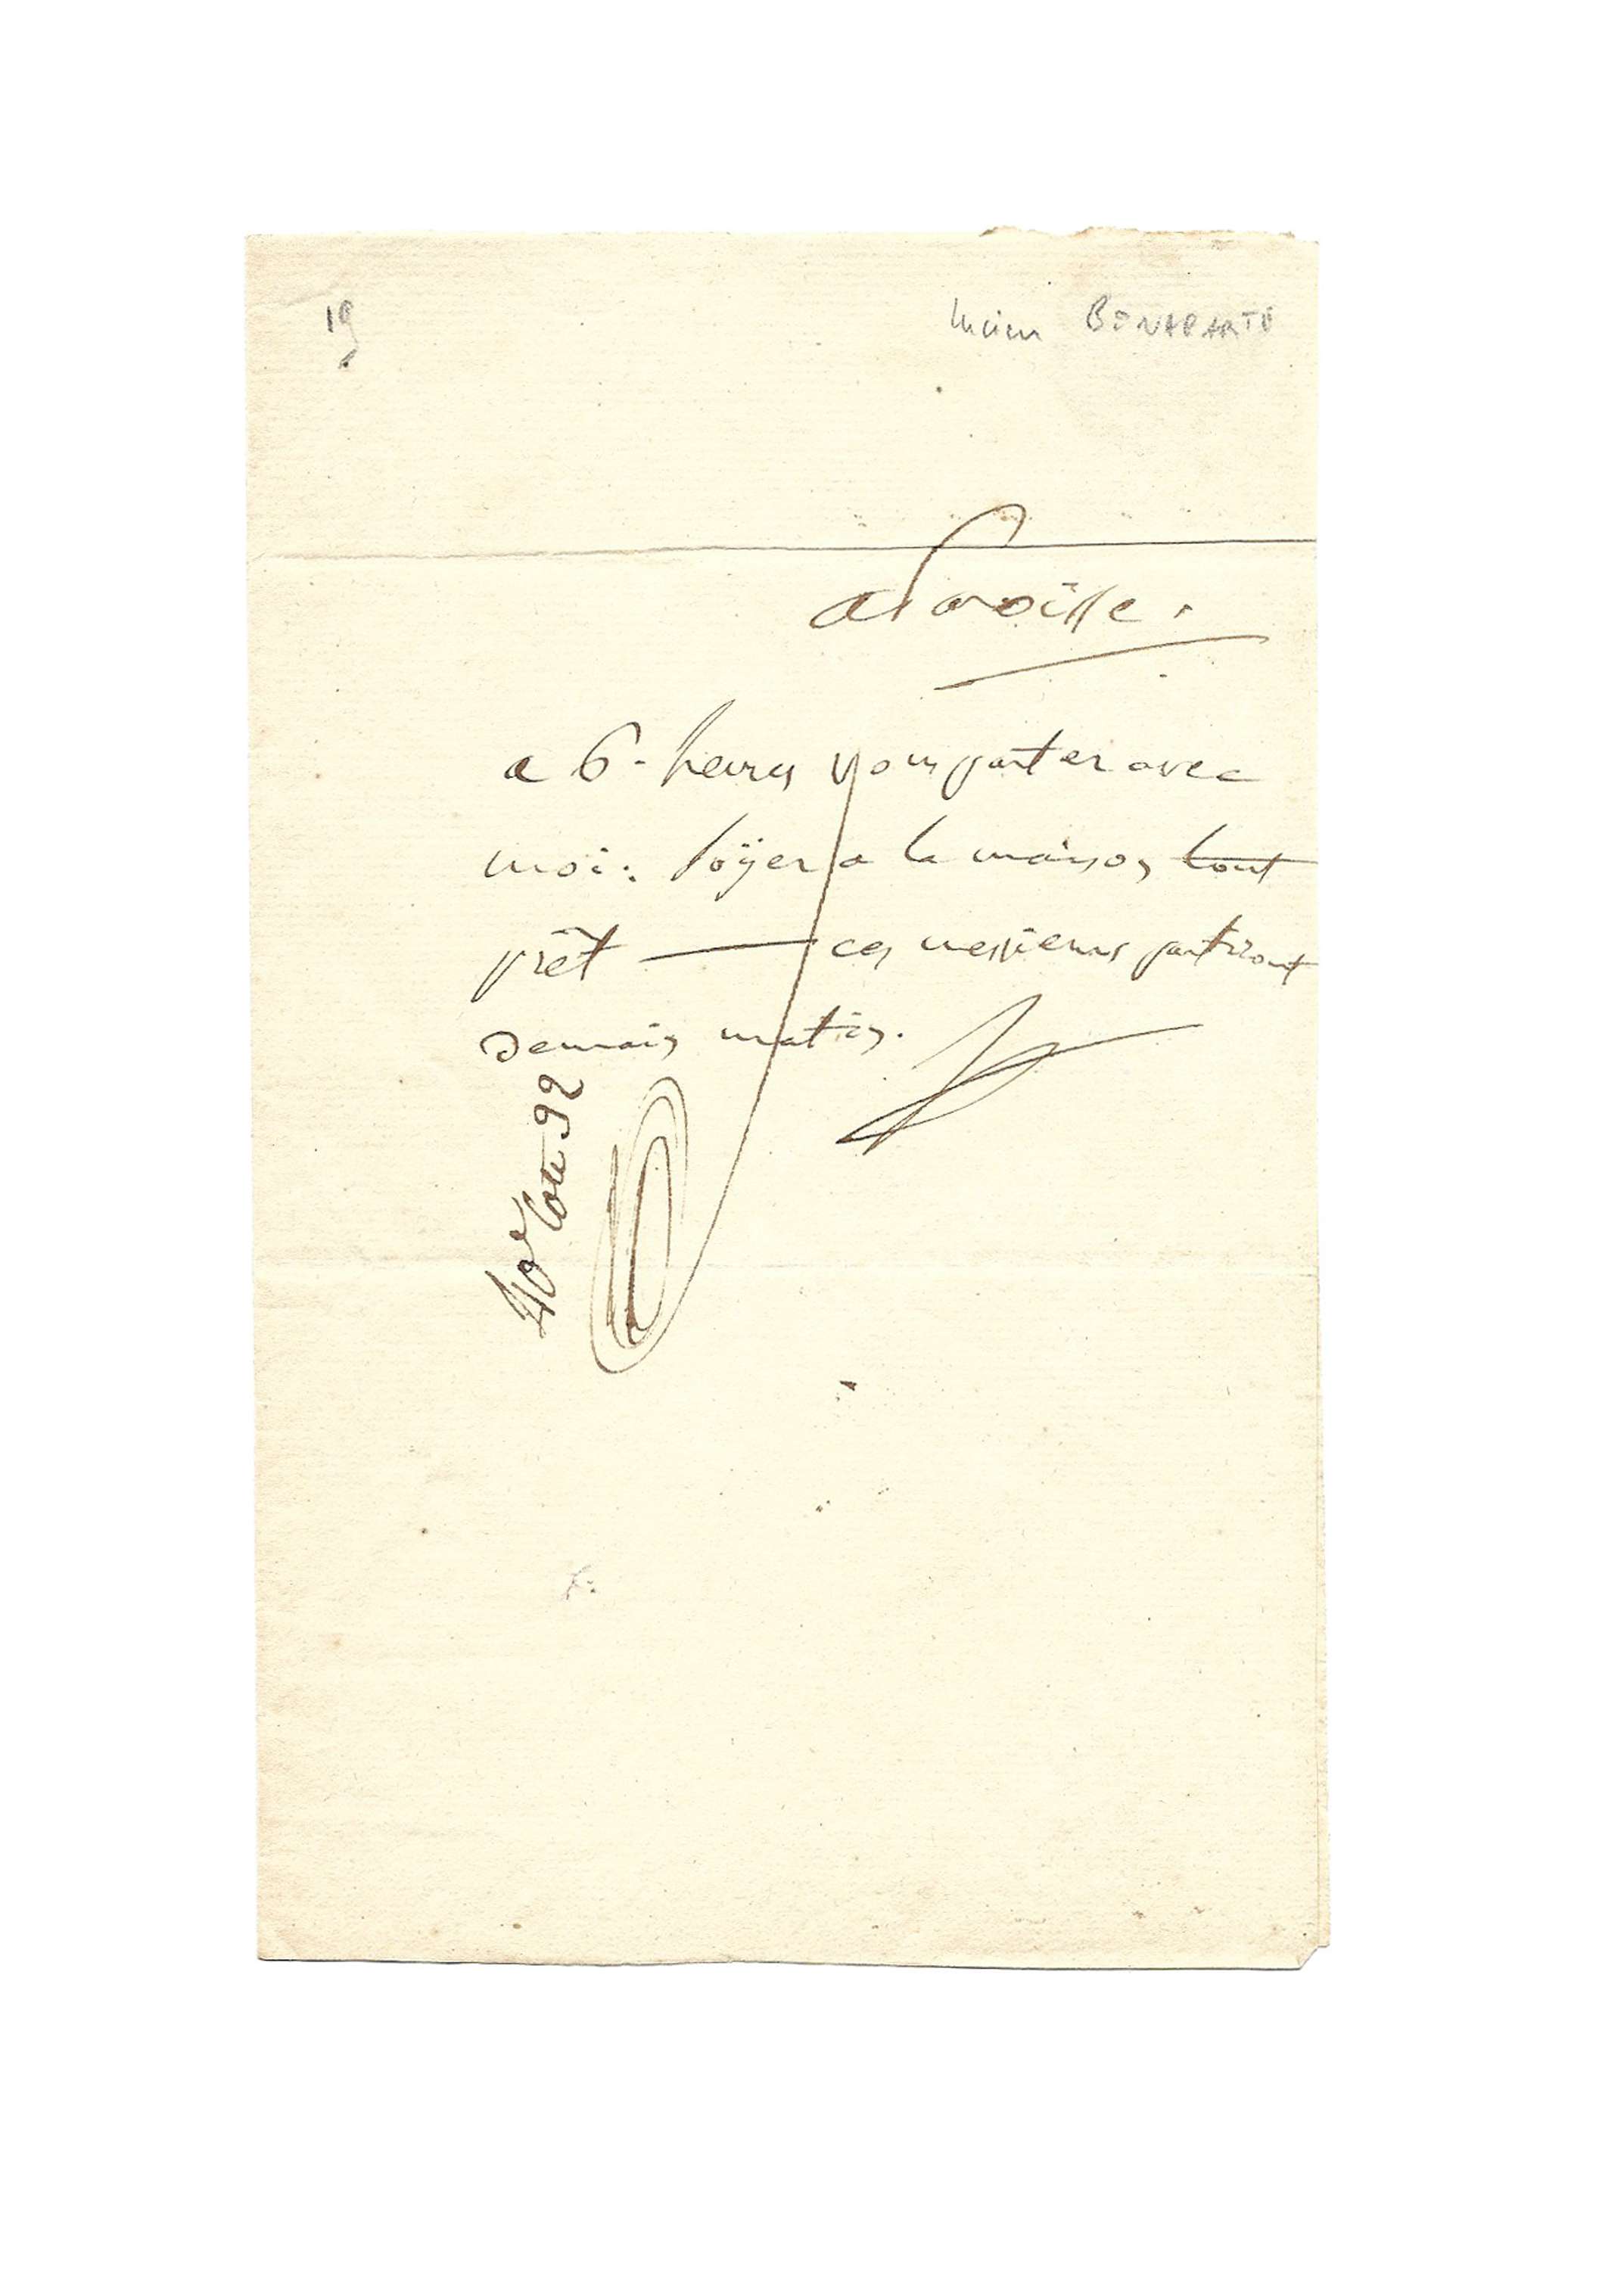 19
Lucien BONAPARTE
a Paroisse.
a 6 - heures vous partez avec
moi: soÿez a la maison tout
prêt — ces messieurs partiront
demain matin.
92